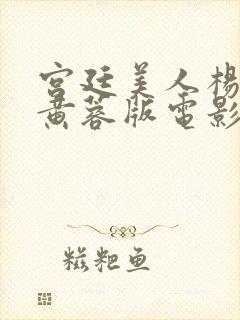 宫廷美人杨
黄蓉版电影
糍粑鱼